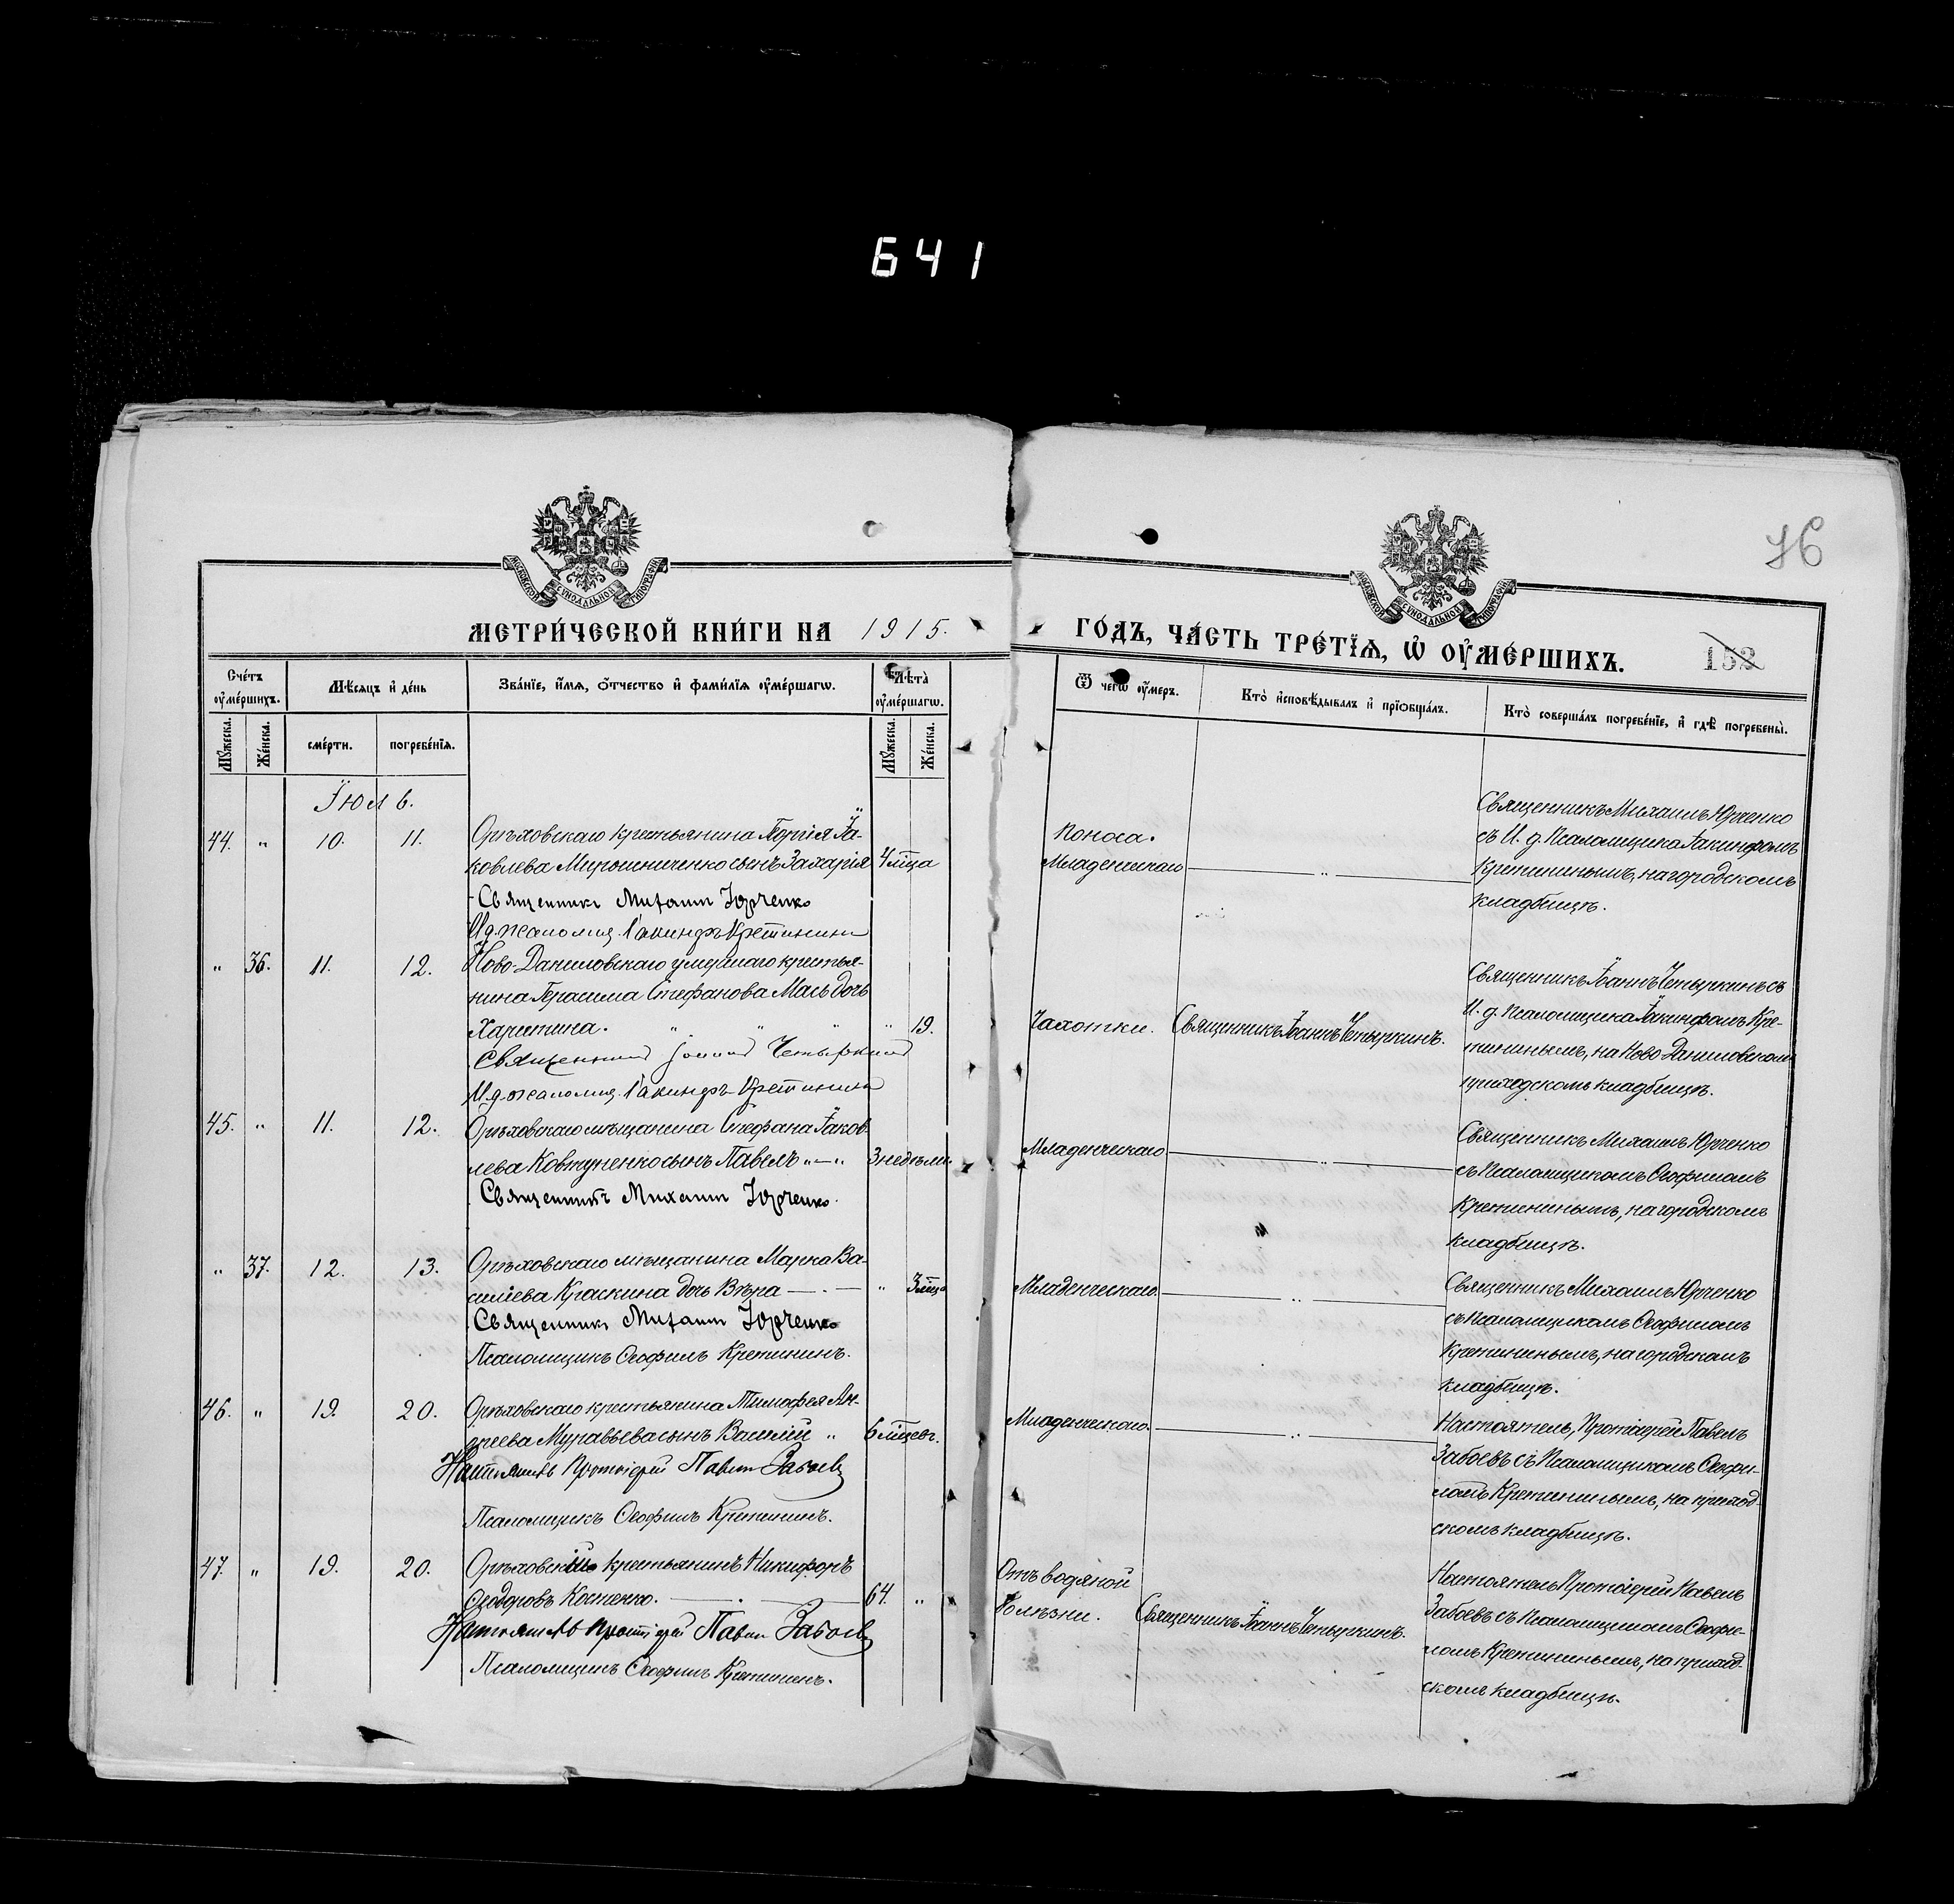 641
76
МОСКОВСКОЙ СѴНОДАЛЬНОЙ ТИПОГРАФІИ
МОСКОВСКОЙ СѴНОДАЛЬНОЙ ТИПОГРАФІИ
МЕТРИ́ЧЕСКОЙ КНИ́ГИ НА 1915.
ГО́ДЪ, ЧА́СТЬ ТРЕ́ТЇѦ, Ѡ҆ ОУ҆МЕ́РШИХЪ.
152
Сче́тъ оу҆ме́ршихъ.
Мѣ́сяцъ и҆ де́нь
Зва́нїе, и҆́мѧ, ѻ҆́тчество и҆ фамѝлїѧ оу҆ме́ршагѡ.
Лѣ́та̀ оу҆ме́ршагѡ.
Ѿ чегѡ̀ оу҆́меръ.
Кто̀ и҆сповѣ́дывалъ и҆ прїѡбща́лъ.
Кто̀ соверша́лъ погребе́нїе, и҆ гдѣ̀ погребены̀.
Мꙋ́жеска. Же́нска. сме́рти. погребе́нїѧ. Мꙋ́жеска. Же́нска.
Іюль.
44. " 10. 11.
Орѣховскаго крестьянина Іа-
ковлева Мирошниченко сынъ Захарія 4 мѣсца
Священникъ Михаилъ Юрченко
И.д. псаломщ. Іакинфъ Кретининъ
поноса.
Младенческаго "
Священникъ Михаилъ Юрченко
съ И. д. Псаломщика Іакинфомъ
Кретининымъ, на городскомъ
кладбищѣ.
" 36. 11. 12.
Ново-Даниловскаго умершаго крестья-
нина Герасима Стефанова Мась дочь
Харитина. " " " " 19.
Священникъ Іоаннъ Четыркинъ
И.д. псаломщ. Іакинфъ Кретининъ
Чахотки. Священникъ Іоаннъ Четыркинъ.
Священникъ Іоаннъ Четыркинъ съ
И. д. Псаломщика Іакинфомъ Кре-
тининымъ, на Ново-Даниловскомъ
приходскомъ кладбищѣ.
45. " 11. 12.
Орѣховскаго мѣщанина Стефана Іаков-
лева Ковтуненко сынъ Павелъ "—" 3 недѣли.
Священникъ Михаилъ Юрченко.
Младенческаго "
Священникъ Михаилъ Юрченко
съ Псаломщикомъ Ѳеофиломъ
Кретининымъ, на городскомъ
кладбищѣ.
" 37. 12. 13.
Орѣховскаго мѣщанина Марка Ва-
силіева Краскина дочь Вѣра — . — " 3 мѣсца
Священникъ Михаилъ Юрченко
Псаломщикъ Ѳеофилъ Кретининъ.
Младенческаго "
Священникъ Михаилъ Юрченко
съ Псаломщикомъ Ѳеофиломъ
Кретининымъ, на городскомъ
кладбищѣ.
46. " 19. 20.
Орѣховскаго крестьянина Тимофея Ан-
дреева Муравьева сынъ Василій " 6 мѣсцевъ.
Настоятель Протоіерей Павелъ Забоевъ
Псаломщикъ Ѳеофилъ Кретининъ.
Младенческаго "
Настоятель, Протоіерей Павелъ
Забоевъ съ Псаломщикомъ Ѳеофи-
ломъ Кретининымъ, на приход-
скомъ кладбищѣ.
47. " 19. 20.
Орѣховскій крестьянинъ Никифоръ
Ѳеодоровъ Костенко. — . — 64. "
Настоятель Протоіерей Павелъ Забоевъ
Псаломщикъ Ѳеофилъ Кретининъ.
Отъ водяной
болѣзни. Священникъ Іоаннъ Четыркинъ.
Настоятель Протоіерей Павелъ
Забоевъ съ Псаломщикомъ Ѳеофи-
ломъ Кретининымъ, на приход-
скомъ кладбищѣ.